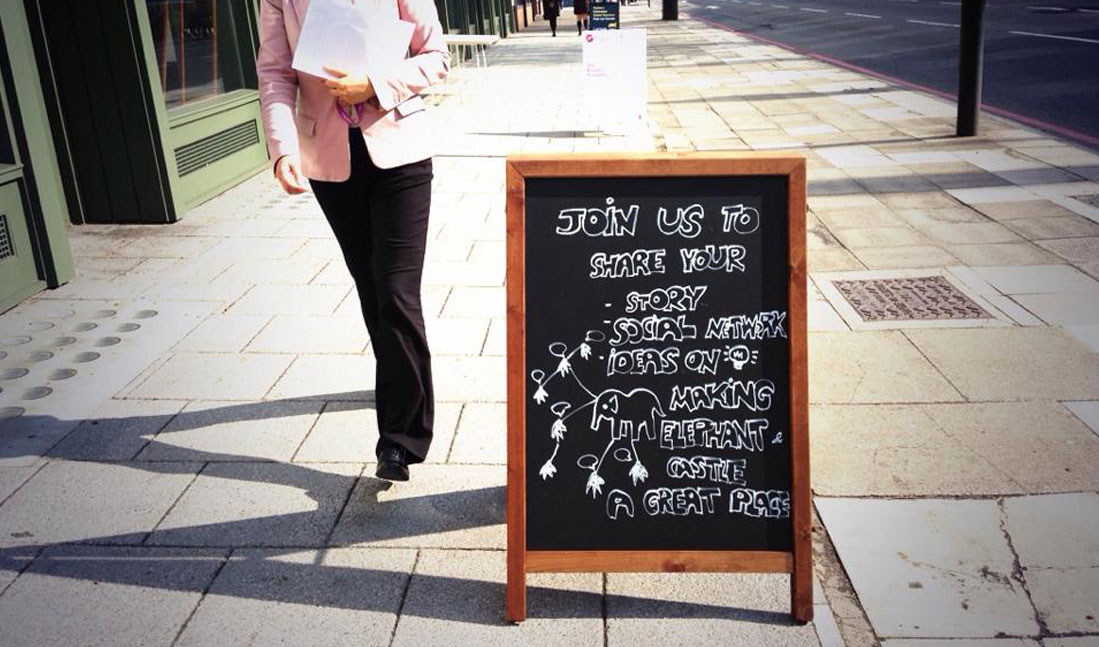 JOIN US TO
SHARE YOUR
- STORY
- SOCIAL NETWRK
- IDEAS ON
MAKING
ELEPHANT &
CASTLE
A GREAT PLACE